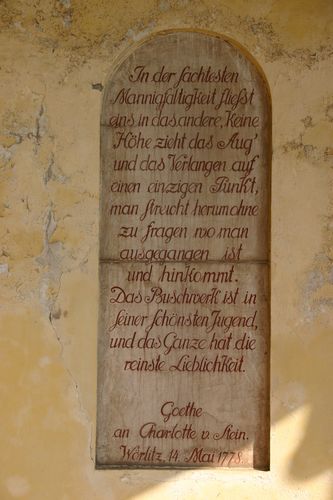 In der sachtesten
Mannigfaltigkeit fließt
eins in das andere, Keine
Höhe zieht das Aug'
und das Verlangen auf
einen einzigen Punkt,
man streicht herum ohne
zu fragen wo man
ausgegangen ist
und hinkommt.
Das Buschwerk ist in
seiner schönsten Jugend,
und das Ganze hat die
reinste Lieblichkeit.
Goethe
an Charlotte v. Stein.
Wörlitz, 14. Mai 1778.